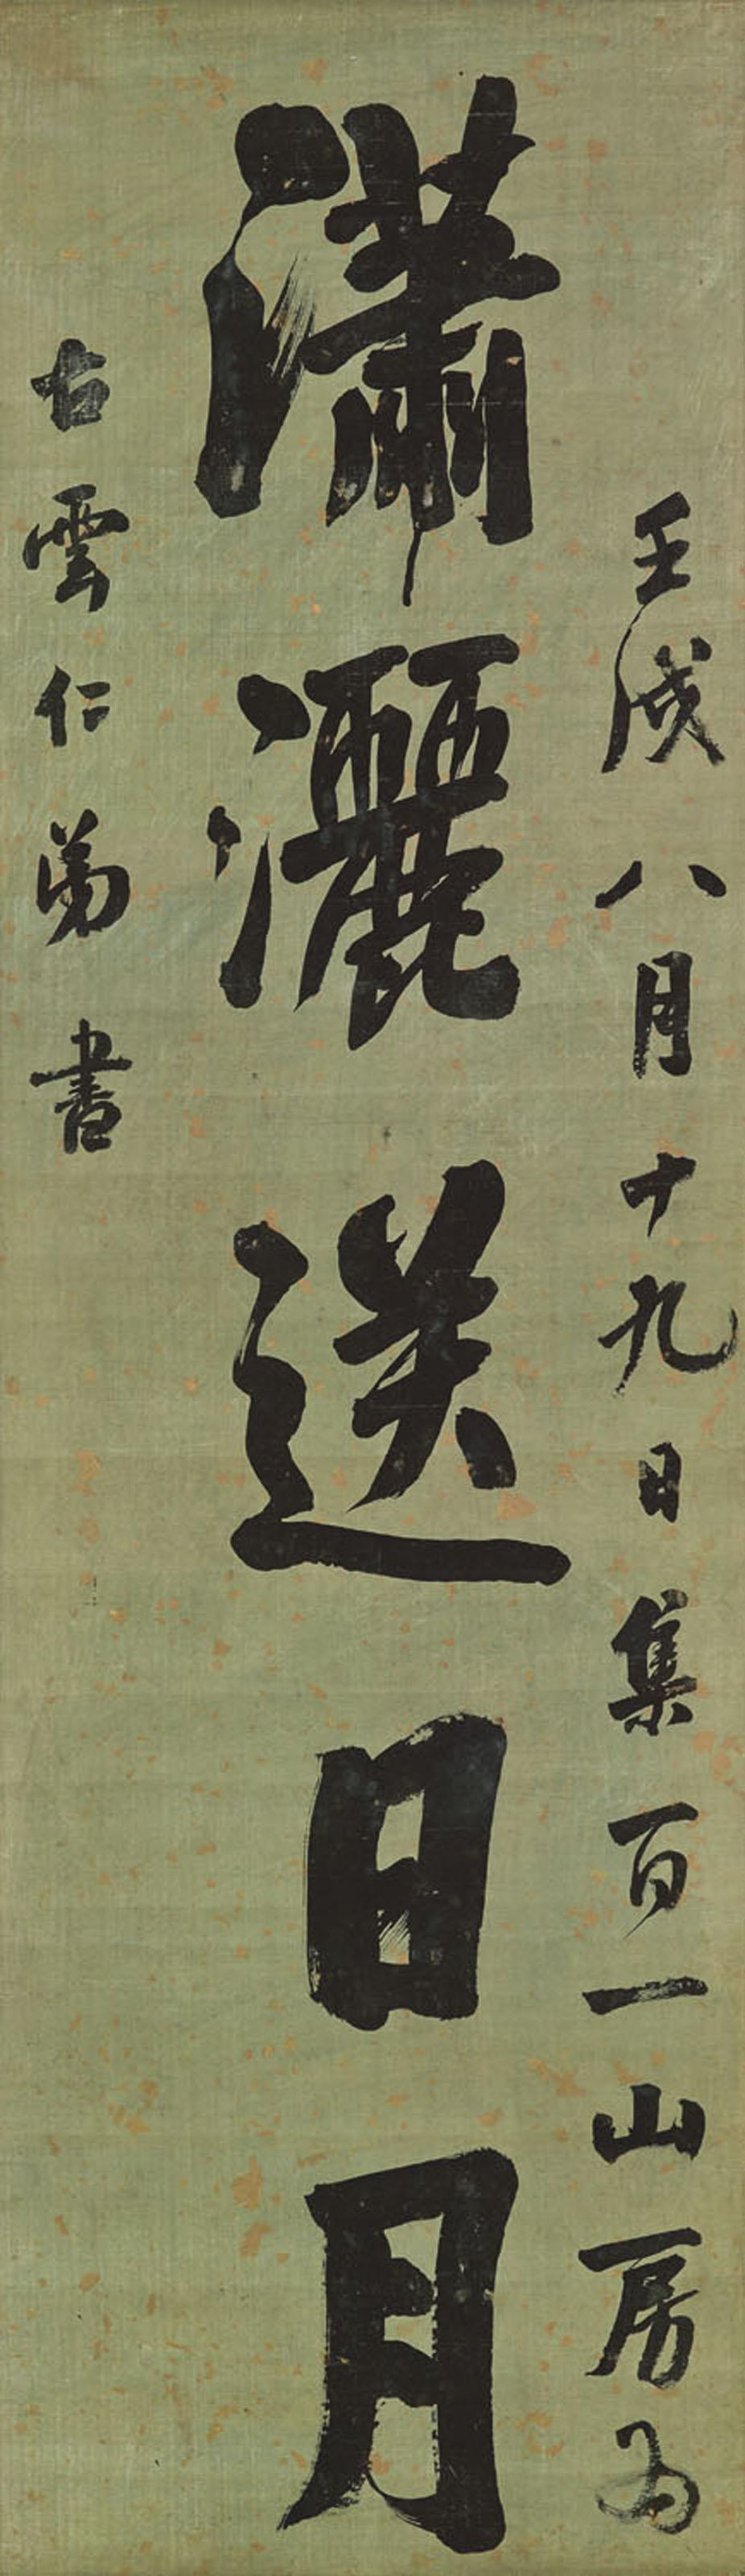 壬戌八月十九日集百一山房为
瀟灑送日月
古雲仁弟書